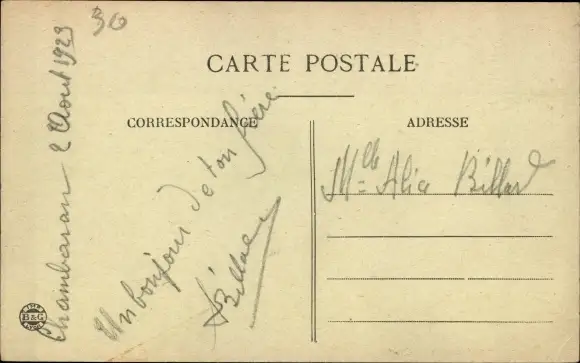 30
CARTE POSTALE
CORRESPONDANCE
ADRESSE
Chambaran 2 Aout 1923
Un bonjour de ton frère
Billard
Mlle Alice Billard
B&G